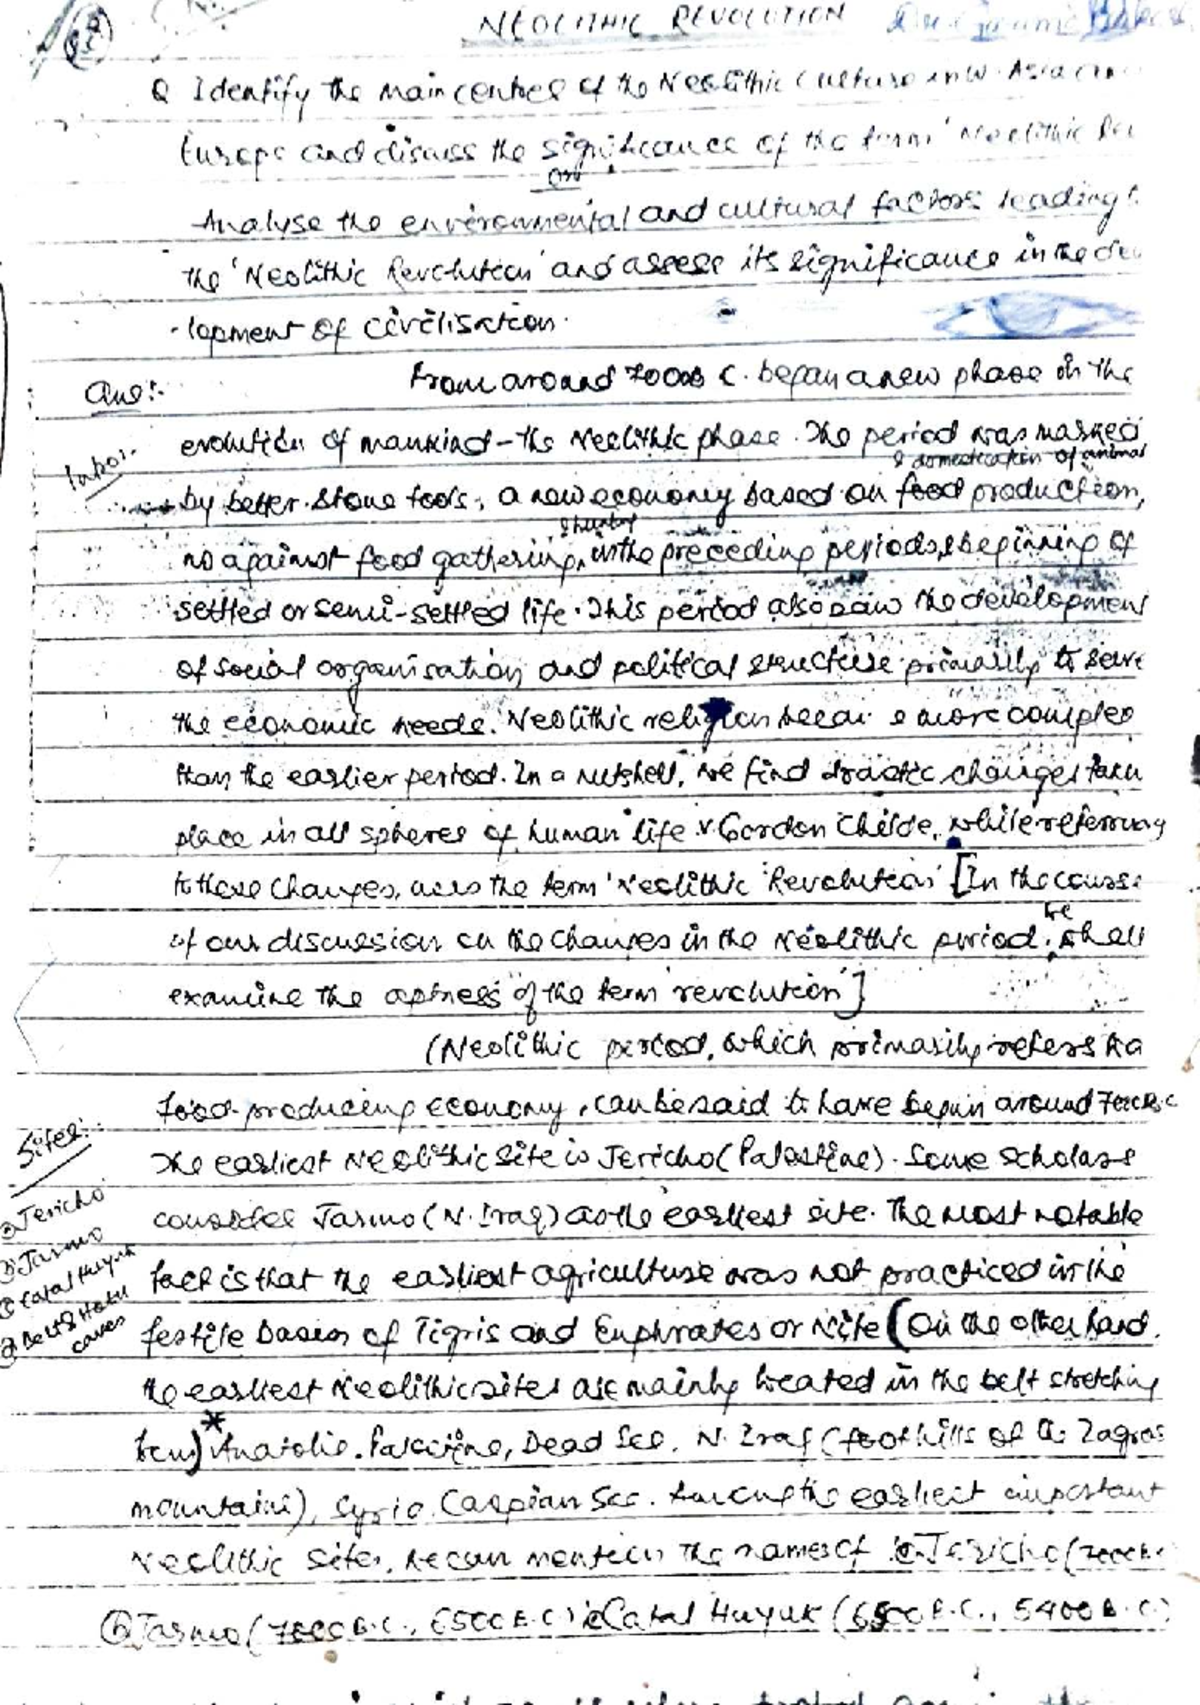 NEOLITHIC REVOLUTION
Q Identify the main centres of the Neolithic Culture in W. Asia
Europe and discuss the significance of the term 'Neolithic
or
Analyse the environmental and cultural factors leading
the 'Neolithic Revolution' and assess its significance in the
lopment of civilisation.
Ans:-
From around 7000B C. began a new phase in the
evolution of mankind - the Neolithic phase. The period was marked
& domestication of animal
by better stone tools, a new economy based on food production,
& hunting
as against food gathering, in the preceding periods, & beginning of
settled or semi-settled life. This period also saw the development
of social organisation and political structure primarily to serve
the economic needs. Neolithic religion more complex
than the earlier period. In a nutshell, we find drastic changes taken
place in all spheres of human life V. Gordon Childe, while referring
to these changes, uses the term 'Neolithic Revolution' [In the course
of our discussion on the changes in the Neolithic period, we shall
examine the aptness of the term 'revolution']
(Neolithic period, which primarily refers to a
food-producing economy, can be said to have begun around 7000B.C
Sites:-
The earliest Neolithic site is Jericho (Palestine). Some scholars
Jericho
consider Jarmo (N. Iraq) as the earliest site. The most notable
Jarmo
Catal Huyuk
fact is that the earliest agriculture was not practiced in the
Belt & Hotu
caves
fertile basin of Tigris and Euphrates or Nile (On the other hand,
the earliest Neolithic sites are mainly located in the belt stretching
from)* Anatolia, Palestine, Dead Sea, N. Iraq (foothills of the Zagros
mountains), Syria, Caspian Sea. Among the earliest important
Neolithic sites, we can mention the names of Jericho (7000B.C
(b) Jarmo (7000 B.C., 6500 B.C.) Catal Huyuk (6500 B.C., 5400 B.C.)